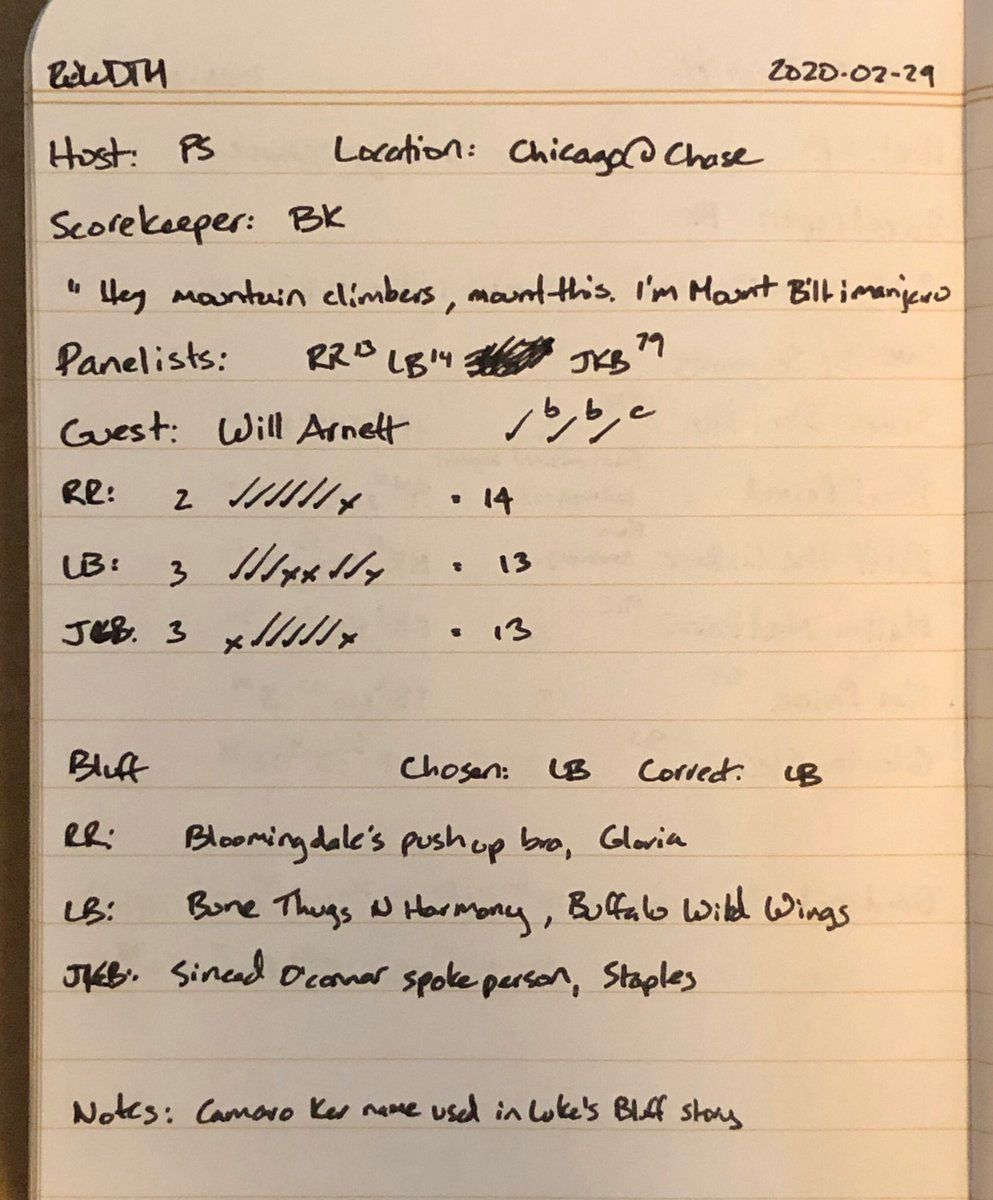 2020-02-29
Host: PS Location: Chicago@Chase
Scorekeeper: BK
"Hey mountain climbers, mount this. I'm Mount Billimanjaro
Panelists: RR13 LB14 JKB79
Guest: Will Arnett ✓ b✓ b✓ c
RR: 2 ✓✓✓✓✓✓x = 14
LB: 3 ✓✓✓xx✓✓x = 13
JKB: 3 x✓✓✓✓✓x = 13
Bluff Chosen: LB Correct: LB
RR: Bloomingdale's push up bra, Gloria
LB: Bone Thugs N Harmony, Buffalo Wild Wings
JKB: Sinead O'connor spokeperson, Staples
Notes: Camaro Kev name used in Luke's Bluff story